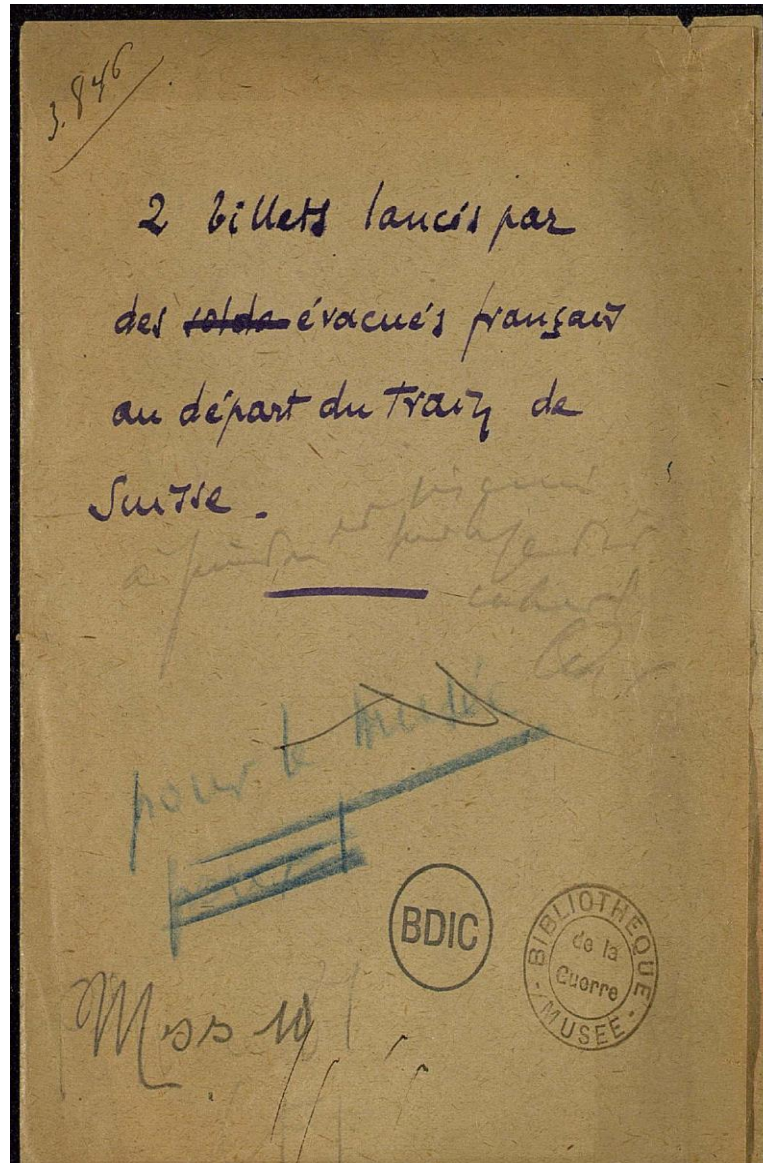 3.846
2 billets lancés par
des solda évacués français
au départ du train de
Suisse.
à joindre
pour le musée
BDIC
BIBLIOTHEQUE
de la
Guerre
MUSEE
Mss